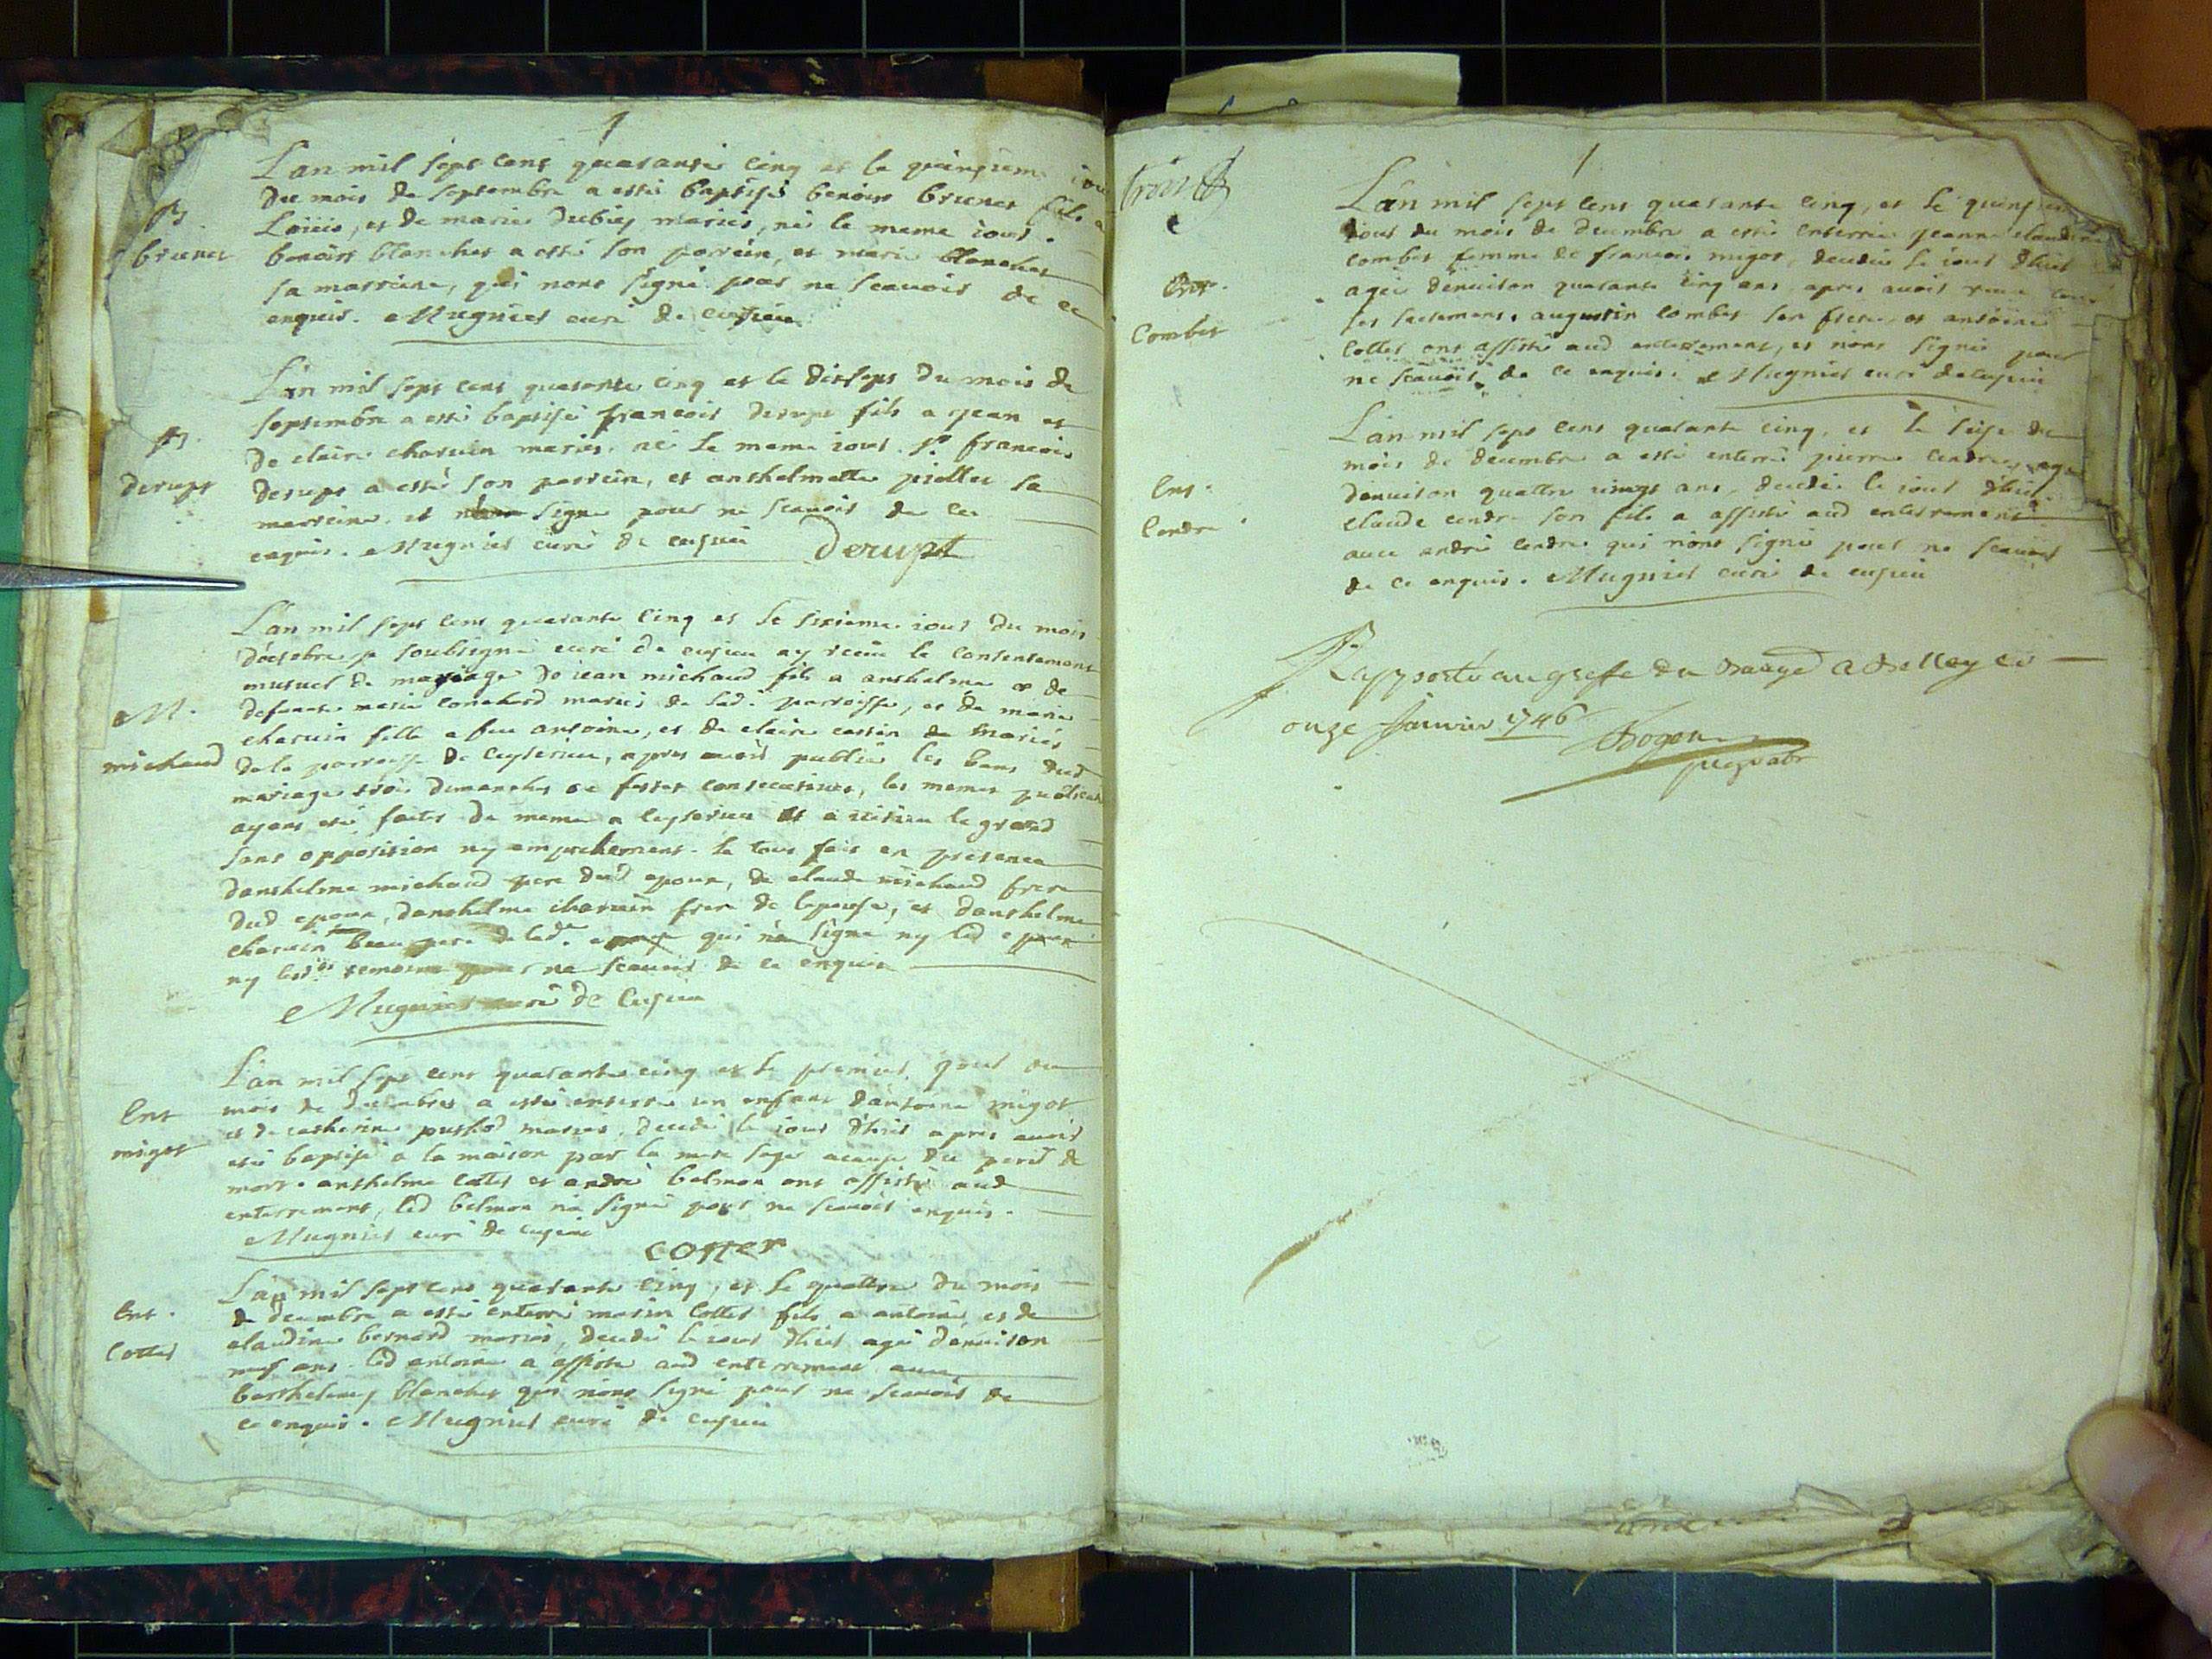 L'an mil sept cens quarante cinq et le quinzieme jour
du mois de septembre a esté baptisé benoist brunet fils a
Loüis, et de marie dubiez mariés, né le meme iour.
B.
brunet
benoist blanchet a esté son parrein, et marie blanchet
sa marreine, qui nont signé pour ne scauoir de ce
enquis. Mugnier curé de cuzieu
L'an mil sept cens quarante cinq et le dixsept du mois de
septembre a esté baptisé francois derupt fils a jean et
B.
de claire charuin mariés, né le meme iour. Sr francois
derupt
derupt a esté son parrein, et anthelmette piollet sa
marreine, et signé pour ne scauoir de ce
enquis. Mugnier curé de cuzieu Derupt
L'an mil sept cens quarante cinq et le sixieme iour du mois
d'octobre je soubsigné curé de cuzieu ay receu le consentement
mutuel de mariage de iean michaud fils a anthelme et de
M.
defunte marie conchard mariés de lad. parroisse, et de marie
charuin fille a feu antoine, et de claire cassin de mariés
michaud
de la parroisse de ceyserieu, apres auoir publié les bans dud
mariage trois dimanches ou festes consecutiues, les memes publica
ayant esté faites de meme a ceyserieu et a uirieu le grand
sans opposition ny empechement. le tout fait en presence
danthelme michaud pere dud epoux, de claude michaud frere
dud epoux, danthelme charuin frere de lepouse, et danthelme
charuin beaupere de lad.e epouse qui na signé ny led epoux
ny lesds temoins pour ne scauoir de ce enquis
Mugnier curé de cuzieu
L'an mil sept cens quarante cinq et le premier jour du
Ent
mois de decembre a esté enterré un enfant d'antoine migot
migot
et de catherine puthod mariés, decedé le iour d'hier apres auoir
esté baptisé a la maison par la mere sage acause du peril de
mort. anthelme cottet et andré belmon ont assisté aud
enterrement, led belmon na signé pour ne scauoir enquis.
Mugnier curé de cuzieu
cotter
L'an mil sept cens quarante cinq, et le quattre du mois
Ent.
de decembre a esté enterré marin cottet fils a antoine, et de
Cottet
claudine bernard mariés, decedé le iour d'hier agé denuiron
neuf ans. led antoine a assisté aud enterrement auec
barthelemy blanchet qui nont signé pour ne scauoir de
ce enquis. Mugnier curé de cuzieu
trois
L'an mil sept cens quarante cinq, et le quinzieme
iour du mois de decembre a esté enterrée jeanne claudine
combet femme de francois migot, decedée le iour d'hier
Ent.
agée denuiron quarante cinq ans, apres auoir receu tous
Combet
les sacremens. augustin combet son frere et antoine
cottet ont assisté aud enterrement, et nont signé pour
ne scauoir de ce enquis. Mugnier curé de cuzieu
L'an mil sept cens quarante cinq, et le seize du
mois de decembre a esté enterré pierre cendre agé
Ent.
denuiron quattre uingt ans, decedé le iour d'hier.
Cendre
claude cendre son fils a assisté aud enterrement
auec andré cendre qui nont signé pour ne scauoir
de ce enquis. Mugnier curé de cuzieu
Rapporté au greffe du a Belley ce
onze Januier 1746